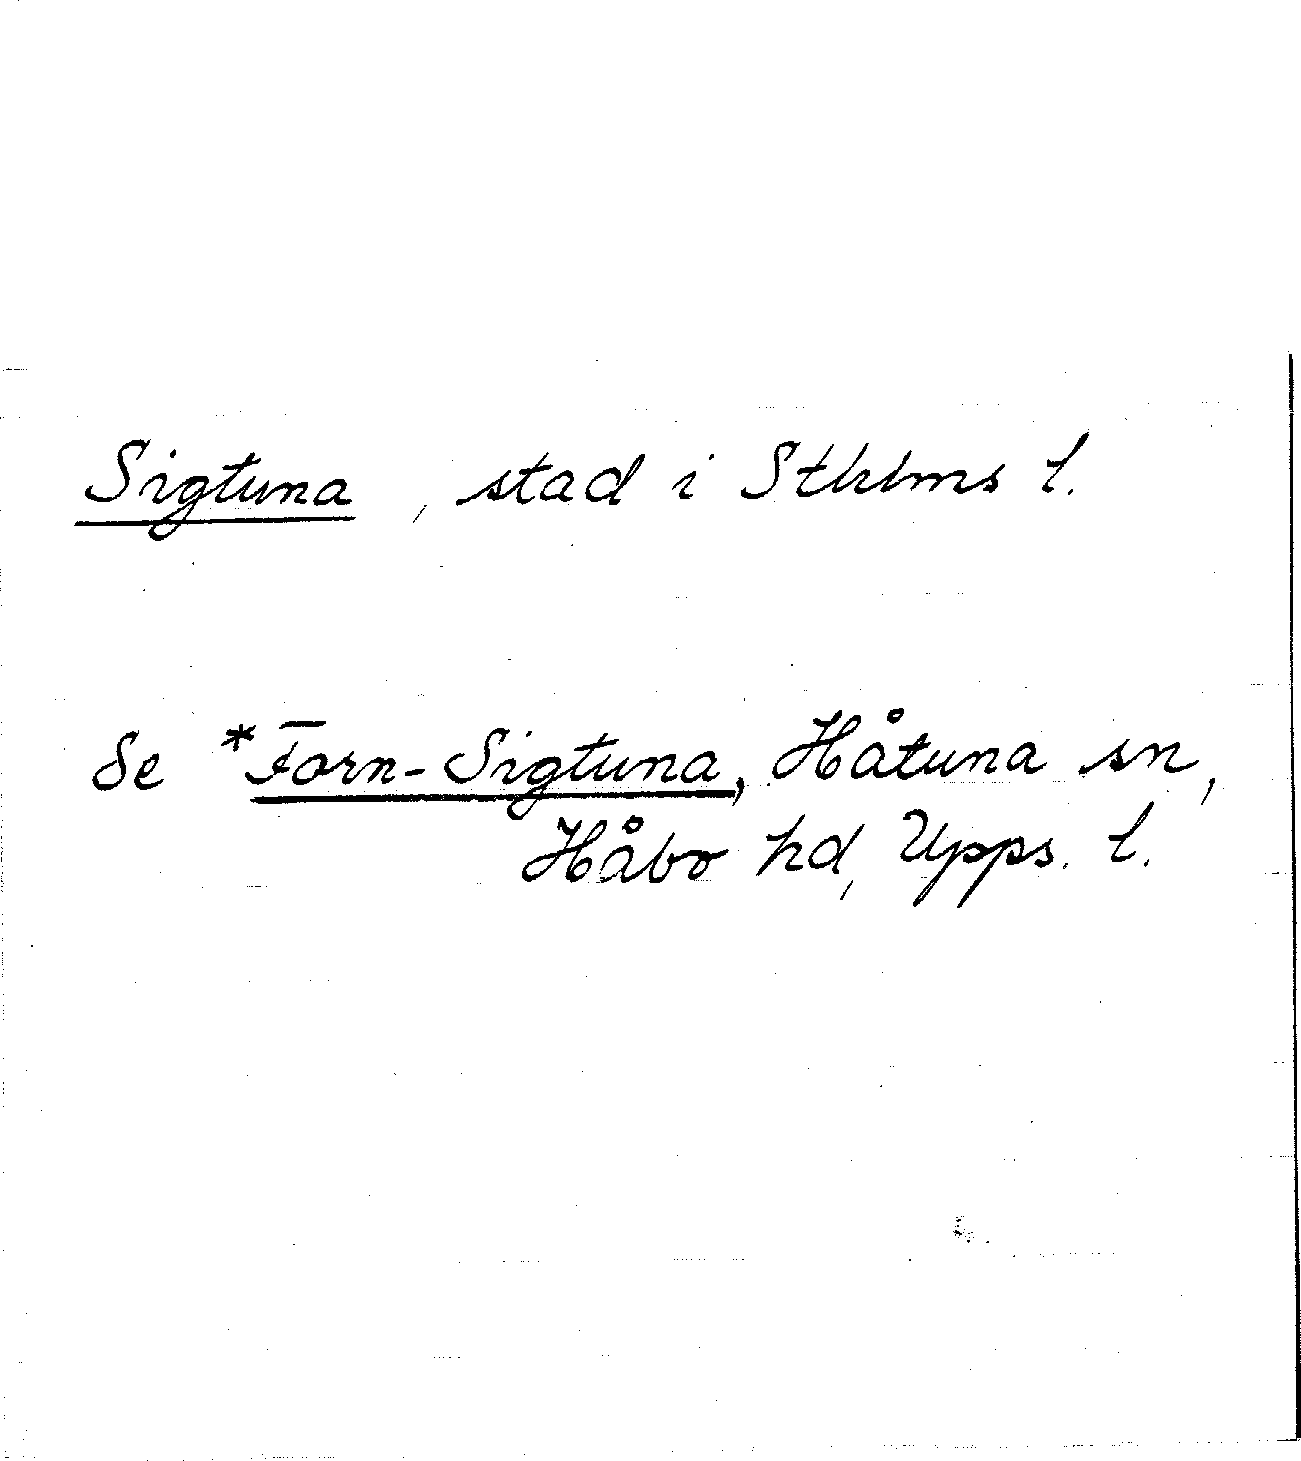 Sigtuna, stad i Sthlms l.
Se *Forn-Sigtuna, Håtuna sn,
Håbo hd, Upps. l.